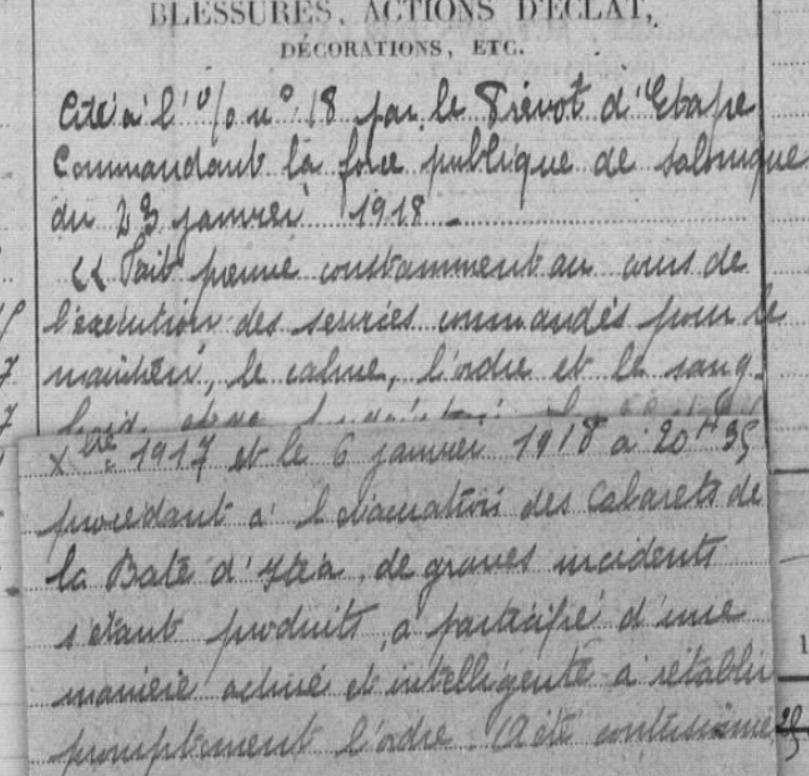 BLESSURES, ACTIONS D'ÉCLAT,
DÉCORATIONS, ETC.
Cité à l'o/o no 18 par le Prévot d'Etape
Commandant la force publique de Salonique
du 23 janvier 1918.
"Fait preuve constamment au cours de
l'execution des services commandés pour le
maintien, le calme, l'ordre et le sang-
Xbre 1917 et le 6 janvier 1918 à 20H35
procedant à l'evacuation des Cabarets de
la Baté d'Itéa, de graves incidents
s'étant produits, a participé d'une
manière active et intelligente à rétablir
promptement l'ordre. A été contusionné